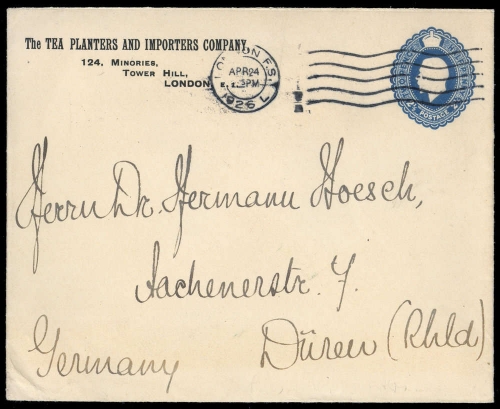 The TEA PLANTERS AND IMPORTERS COMPANY,
124, MINORIES,
TOWER HILL,
LONDON
LONDON F.S.
APR 24
PM
1926 L
POSTAGE
Herrn Dr. Hermann Hoesch,
Aachenerstr. 7.
Düren (Rhld)
Germany